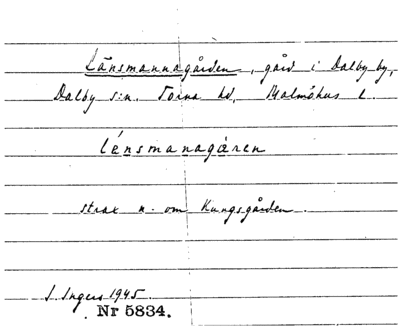 Länsmannagården, gård i Dalby by,
Dalby s:n. Torna hd, Malmöhus l.
lénsmanagåren
strax n. om Kungsgården.
I. Ingers 1945.
Nr 5834.